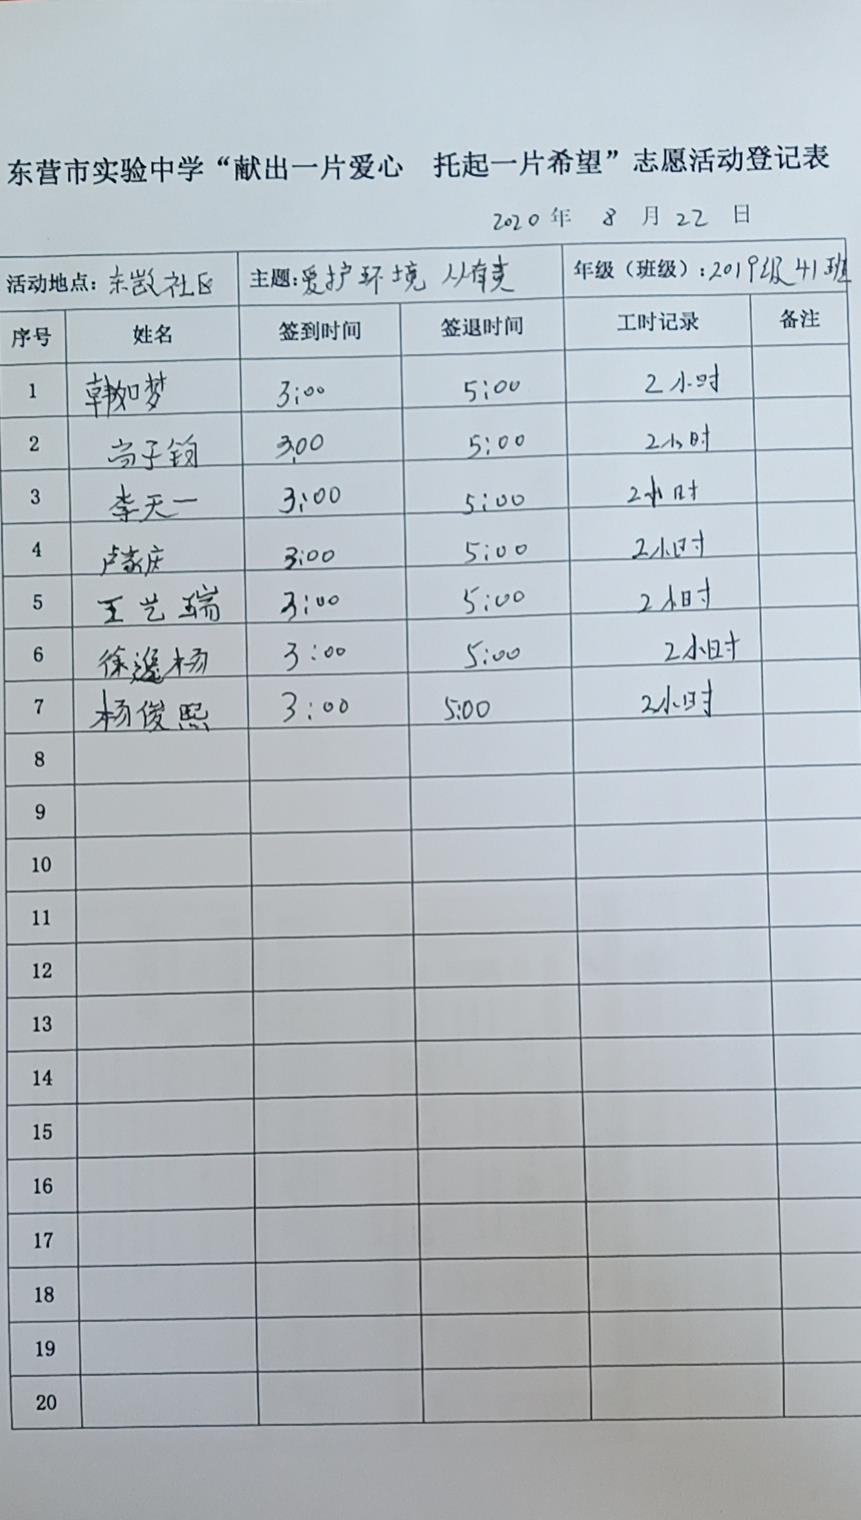 东营市实验中学“献出一片爱心 托起一片希望”志愿活动登记表
2020 年 8 月 22 日
活动地点：东凯社区 主题：爱护环境 从 年级（班级）：2019级41班
序号 姓名 签到时间 签退时间 工时记录 备注
1 韩如梦 3:00 5:00 2小时
2 高子钧 3:00 5:00 2小时
3 李天一 3:00 5:00 2小时
4 卢家庆 3:00 5:00 2小时
5 王艺瑞 3:00 5:00 2小时
6 徐逸杨 3:00 5:00 2小时
7 杨俊熙 3:00 5:00 2小时
8
9
10
11
12
13
14
15
16
17
18
19
20